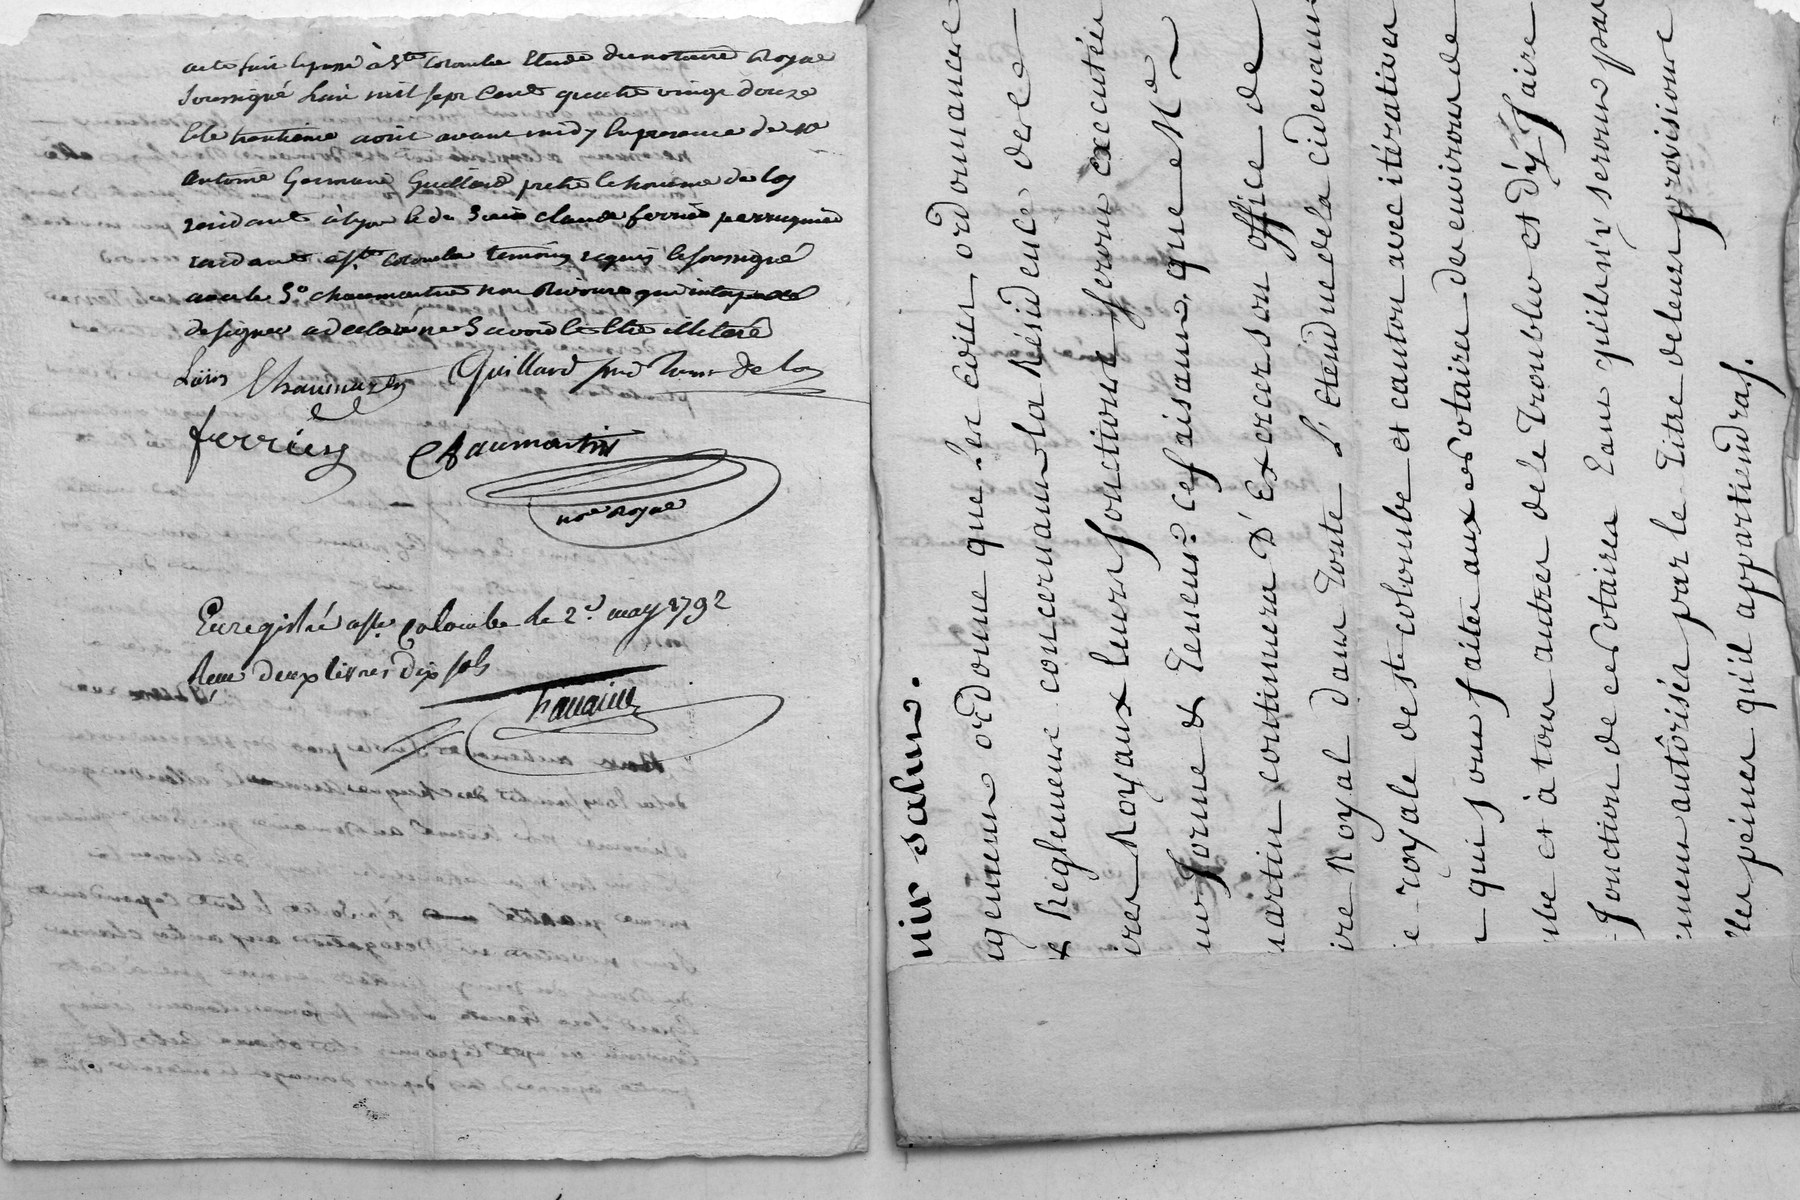 acte fait & passé à Ste Colombe Etude du notaire Royal
soussigné l'an mil sept Cent quatre vingt douze
& le trentieme avril avant midy En presence de Mr
antoine Germain Guillard pretre & homme de loy
residant à lyon & de Sieur claude ferrier perruquier
residant à Ste Colombe temoins requis & soussigné
avec le Sr chaumartin non Rivoire qui interpellé
de signer a declaré ne Savoir & Etre illiteré
Louis Chaumartin Guillard prd homme de loy
ferrier Chaumartin
nore Royal
Enregistré a Ste Colombe le 2d may 1792
Reçu deux livres dix sols
uir salut.
ugement ordonne que les Edits, ordonnance
& Réglement concernant la Résidence des &
ires Royaux leurs fonctions seront exécutés
ur forme & teneur: Ce faisant, que Me
martin continuera D'Exercer son office de
ire Royal dans toute L'Etendue de la cidevant
e royale de ste colombe et canton avec itératives
qui sont faites aux Notaires des environs de
mbe et à tous autres de le troubler et d'y faire
fonction de Notaires tant qu'ils n'y seront pas
ment autôrisés par le titre de leurs provisions
lles peines qu'il appartiendra./.